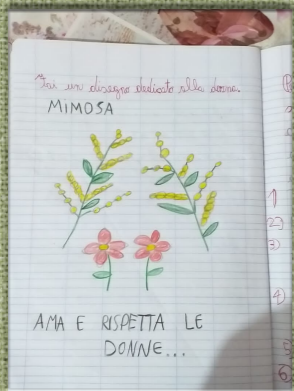 Fai un disegno dedicato alla donna.
MIMOSA
AMA E RISPETTA LE
DONNE...
1
2)
3)
4)
6